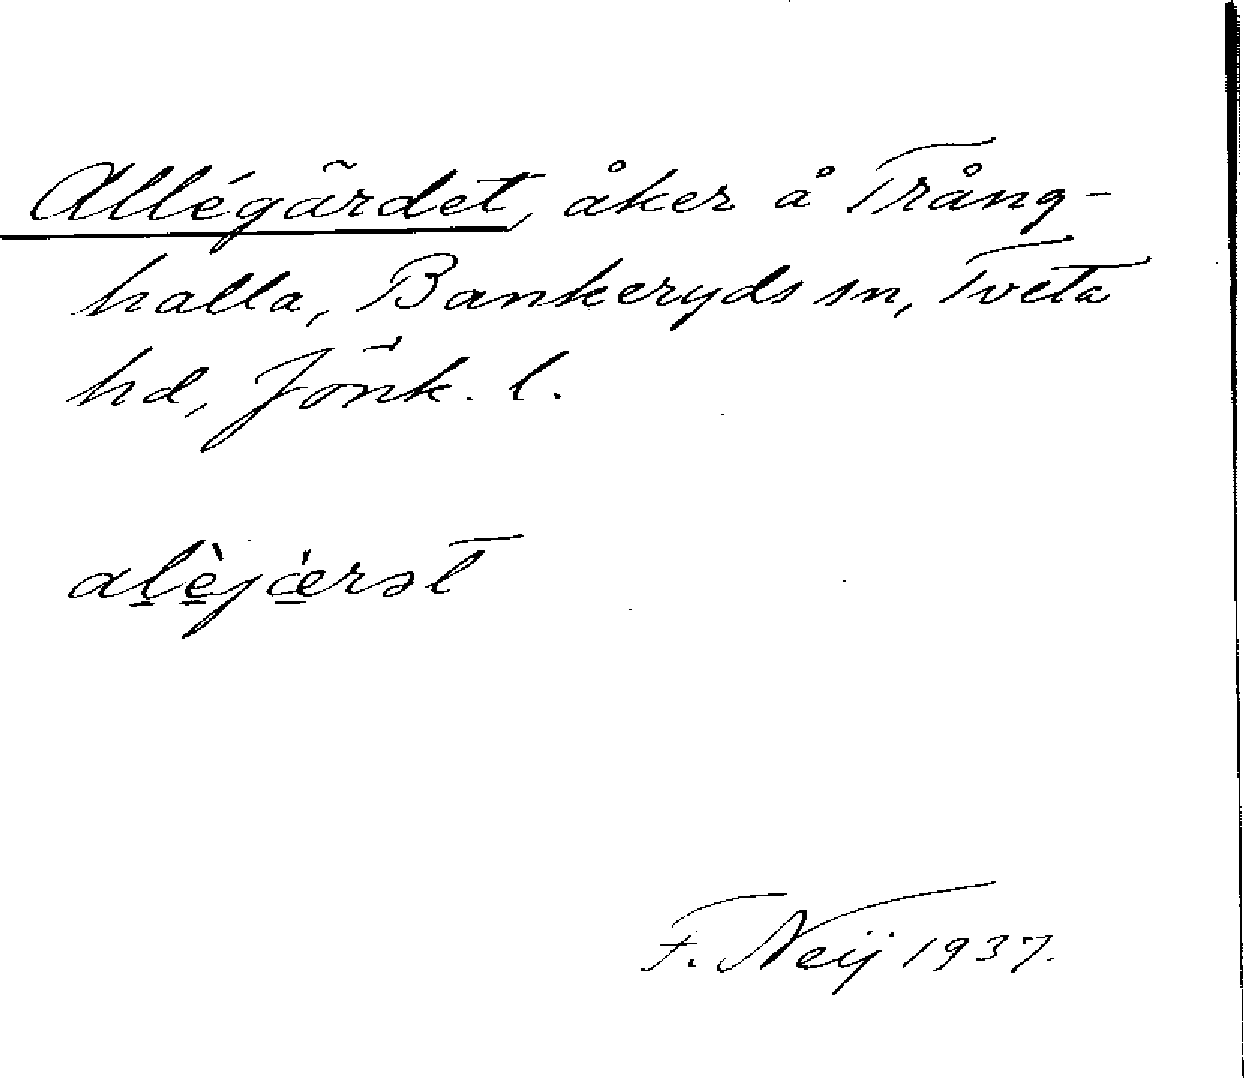 Allégärdet, åker å Trång-
halla, Bankeryds sn, Tveta
hd, Jönk. l.
al̠è̠jǽ̠rət
F. Neij 1937.